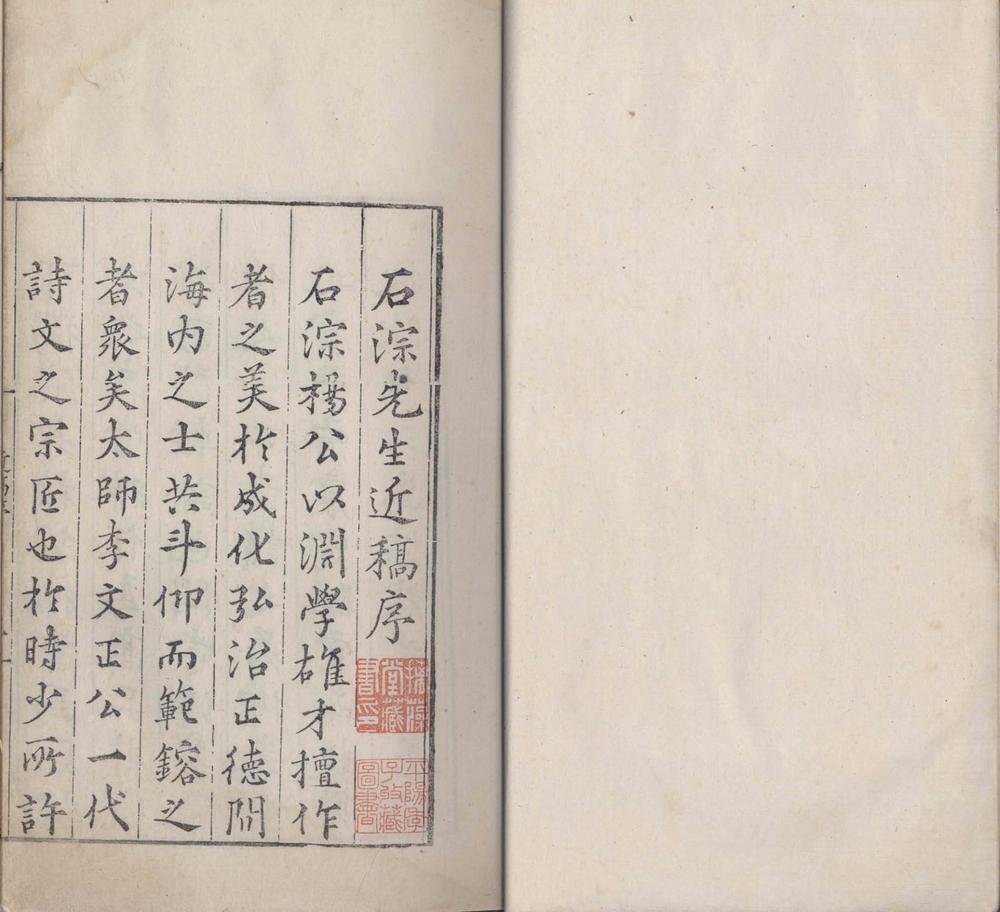 石淙先生近稿序
石淙楊公以淵學雄才擅作
者之美於成化弘治正德間
海内之士共斗仰而範鎔之
者衆矣太師李文正公一代
詩文之宗匠也於時少所許
堂藏
書印
平陽季
子收藏
圖書